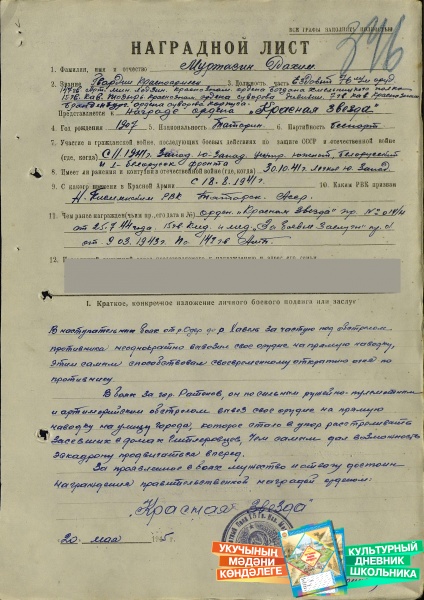 ВСЕ ГРАФЫ ЗАПОЛНЯТЬ ПОЛНОСТЬЮ
346
НАГРАДНОЙ ЛИСТ
1. Фамилия, имя и отчество Муртазин Рахим
2. Звание Гвардии Красноармеец 3. Должность, часть Ездовой 76 м/м оруд.
Представляется к награде ордена "Красная Звезда"
4. Год рождения 1907 5. Национальность Татарин 6. Партийность беспарт
7. Участие в гражданской войне, последующих боевых действиях по защите СССР и отечественной войне
(где, когда) С 11.1941г. Запад. Ю-Запад. Центр. южный, Белорусский
и 1-Белорусск фронта
8. Имеет ли ранения и контузии в отечественной войне (где, когда) 30.10.41г легко Ю. Запад.
9. С какого времени в Красной Армии С 18.8.1941г. 10. Каким РВК призван
РВК Татарск. Асср.
11. Чем ранее награжден (за что, дата и №) орден. "Красная Звезда" пр. №
от 25.7.44 года. 15гв ккд и мед. "За Боевые Заслуги" пр.
от 9.03.1943г. По 142гв
12.
I. Краткое, конкретное изложение личного боевого подвига или заслуг
В наступательных боях от р Одер до р Хавель за частую под обстрелом
противника неоднократно вывозил свое орудие на прямую наводку,
этим самым способствовал своевременному открытию огня по
противнику
В боях за гор. Ратенов, он под сильным ружейно-пулеметным
и артиллерийским обстрелом вывез свое орудие на прямую
наводку на улицу города, которое стало в упор расстреливать
засевших в домах Гитлеровцев, чем самым дал возможность
эскадрону продвигаться вперед.
За проявленные в боях мужество и отвагу достоин
награждения правительственной наградой орденом
"Красная Звезда"
20 мая 5г.
УКУЧЫНЫҢ
МӘДӘНИ
КӨНДӘЛЕГЕ
КУЛЬТУРНЫЙ
ДНЕВНИК
ШКОЛЬНИКА